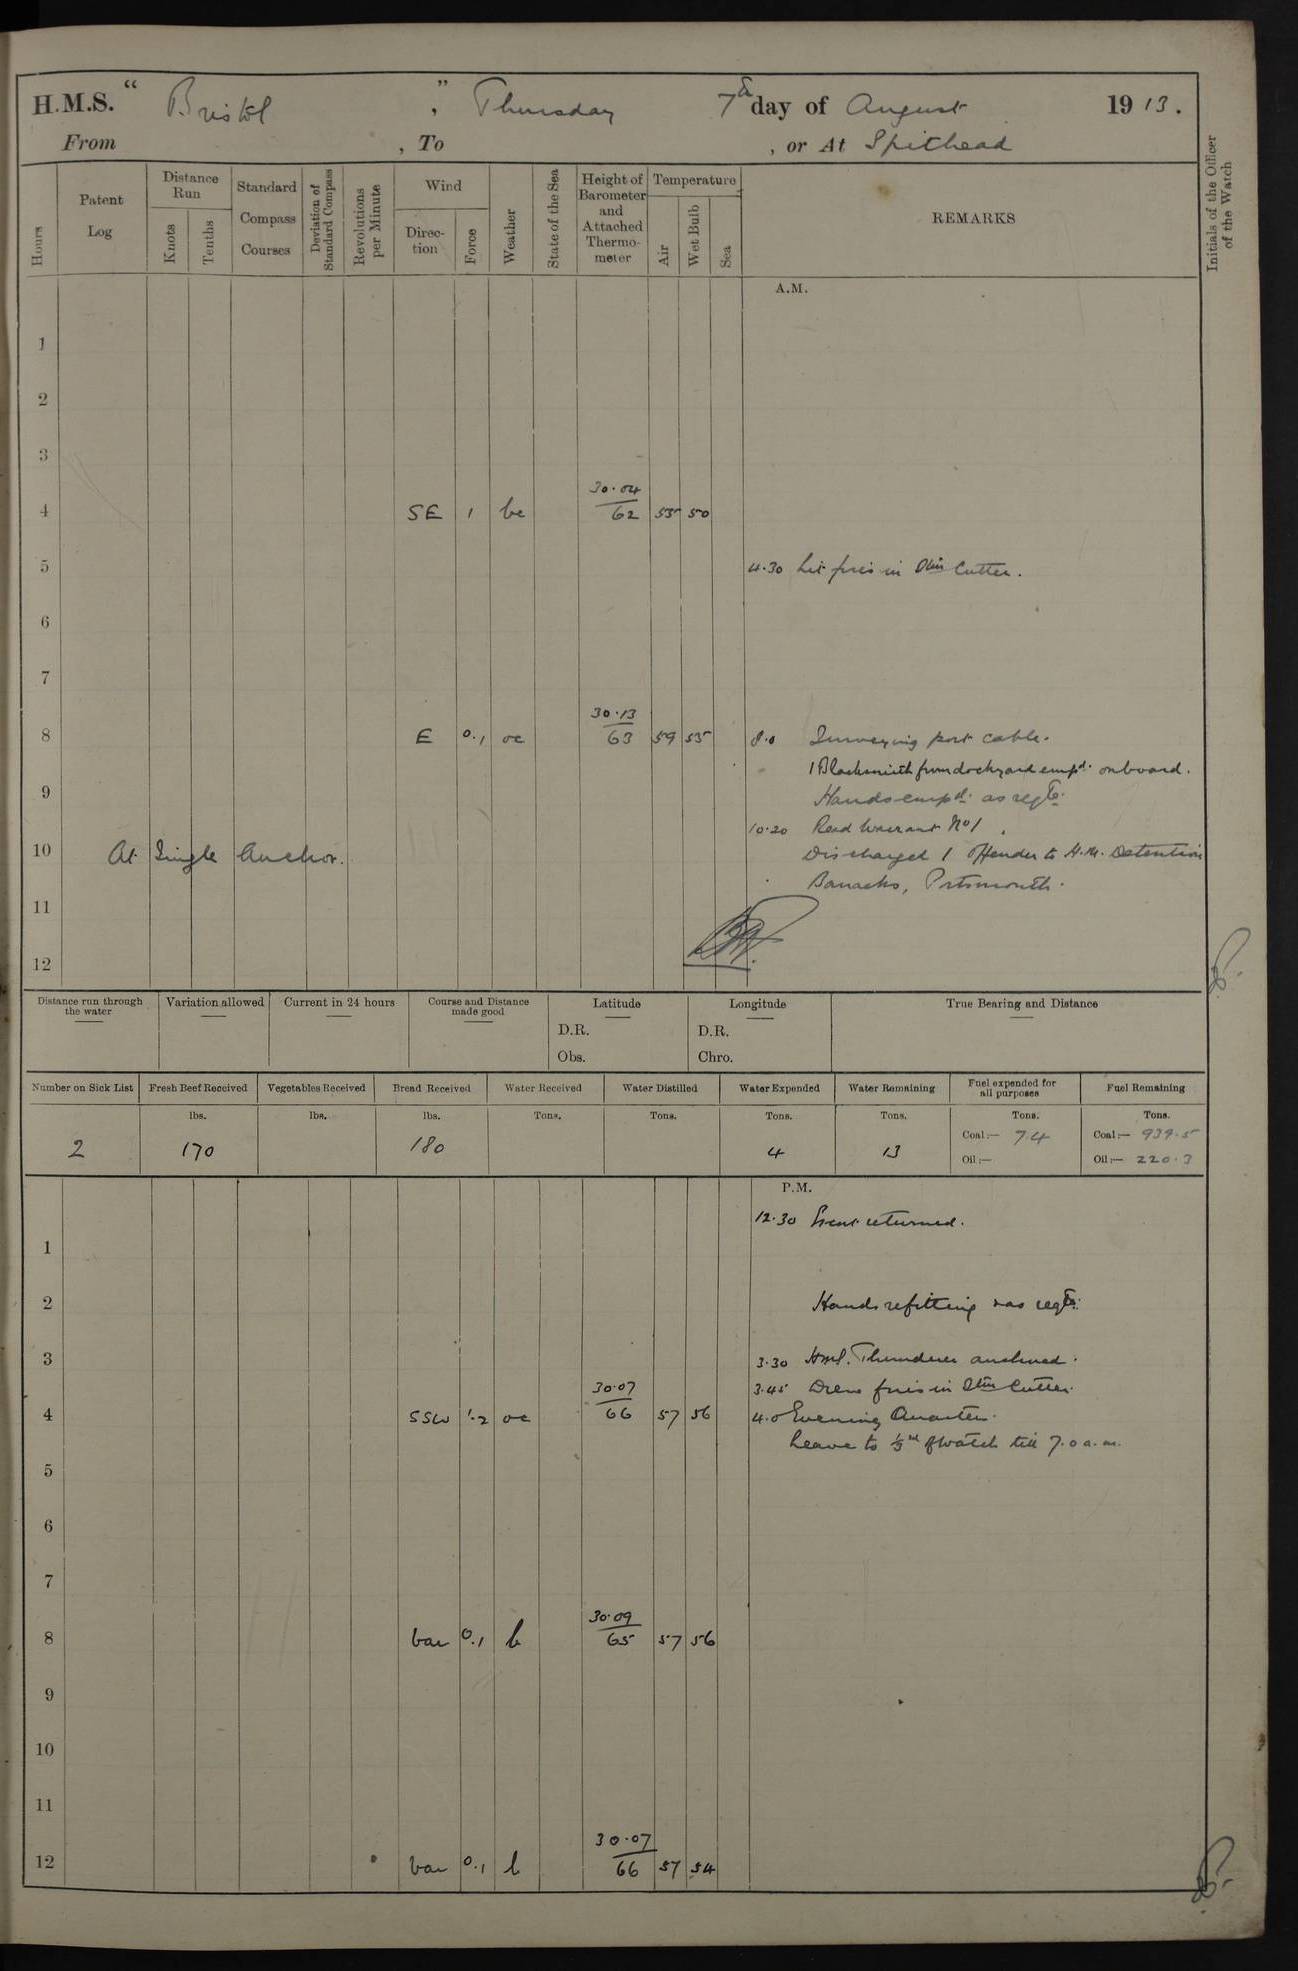 H.M.S. "Bristol", Thursday 7th day of August 1913.
From , To , or At Spithead
Hours
Patent Log
Distance Run
Knots
Tenths
Standard Compass Courses
Deviation of Standard Compass
Revolutions per Minute
Wind
Direction
Force
Weather
State of the Sea
Height of Barometer and Attached Thermometer
Temperature
Air
Wet Bulb
Sea
REMARKS
Initials of the Officer of the Watch
A.M.
1
2
3
4 SE 1 bc 30.04 62 55 50
5 4.30 Lit fires in Stm Cutter.
6
7
8 E 0.1 oc 30.13 63 59 55 8.0 Surveying port cable.
1 Blacksmith from dockyard empd. onboard.
9 Hands empd. as reqte.
10.20 Read Warrant No 1
10 At Single Anchor. Discharged 1 Offender to H.M. Detention
Barracks, Portsmouth.
11
12
Distance run through the water
Variation allowed
Current in 24 hours
Course and Distance made good
Latitude
D.R.
Obs.
Longitude
D.R.
Chro.
True Bearing and Distance
Number on Sick List Fresh Beef Received Vegetables Received Bread Received Water Received Water Distilled Water Expended Water Remaining Fuel expended for all purposes Fuel Remaining
lbs. lbs. lbs. Tons. Tons. Tons. Tons. Tons. Tons.
2 170 180 4 13 Coal:— 7.4 Coal:— 939.5
Oil:— Oil:— 220.3
P.M.
12.30 returned.
1
2 Hands refitting & as reqte.
3 3.30 HMS. Thunderer anchored.
3.45 Drew fires in Stm Cutter.
4 SSW 1.2 oc 30.07 66 57 56 4.0 Evening Quarters.
Leave to 1/3rd of watch till 7.0 a.m.
5
6
7
8 var 0.1 b 30.09 65 57 56
9
10
11
12 var 0.1 b 30.07 66 57 54